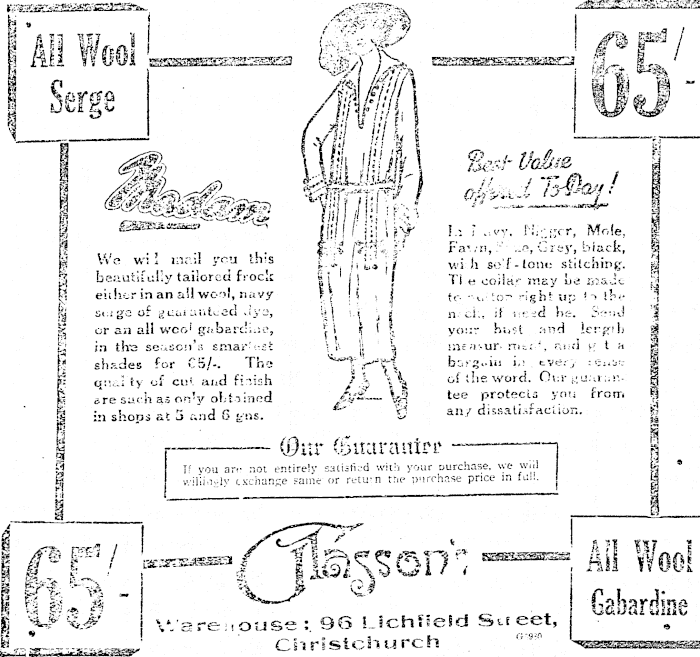 All Wool
Serge
65/-
Madam
We will mail you this
beautifully tailored frock
either in an all wool, navy
serge of guaranteed dye,
or an all wool gabardine,
in the season's smartest
shades for 65/-. The
quality of cut and finish
are such as only obtained
in shops at 5 and 6 gns.
Best Value
offered To-Day!
In Navy, Nigger, Mole,
Fawn, Grey, black,
with self-tone stitching.
The collar may be made
to button right up to the
neck, if need be. Send
your bust and length
measurement, and get a
bargain in every sense
of the word. Our guaran-
tee protects you from
any dissatisfaction.
Our Guarantee
If you are not entirely satisfied with your purchase, we will
willingly exchange same or return the purchase price in full.
65/-
Glasson's
Warehouse: 96 Lichfield Street,
Christchurch
All Wool
Gabardine